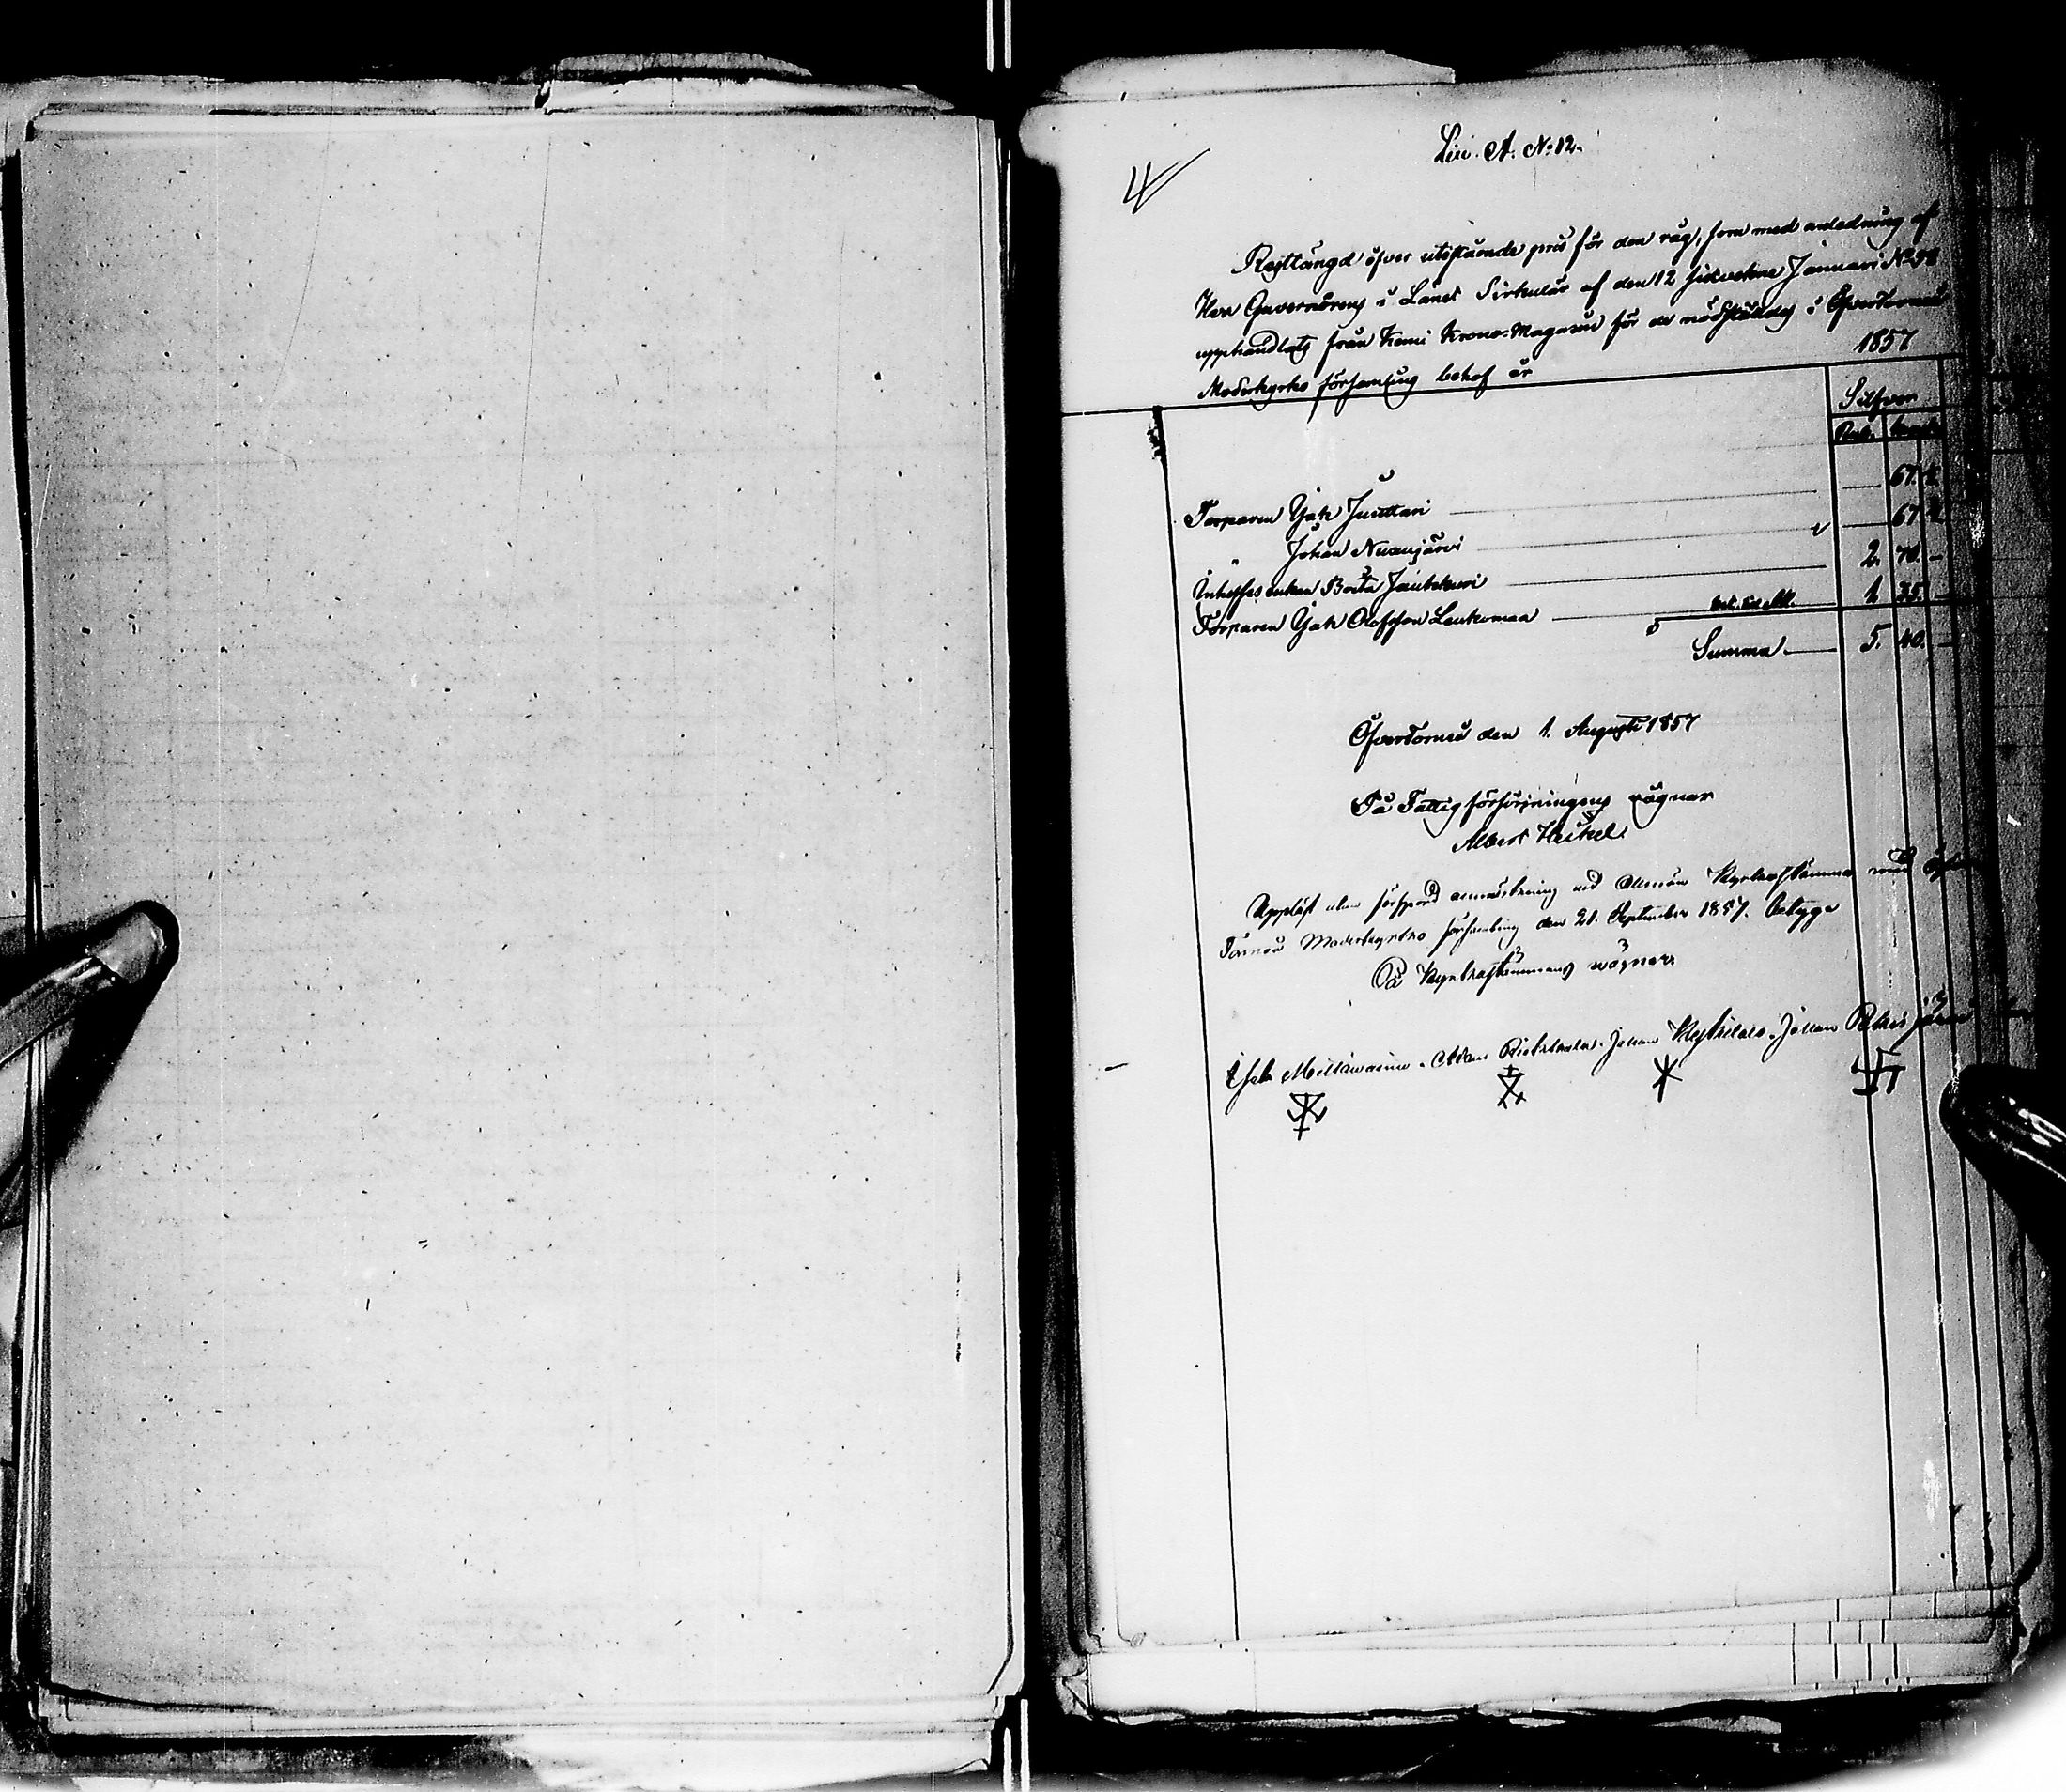 Litt. A. No 12.
4
Restlängd öfver utestående pris för den råg, som med anledning af
Herr Guvernörens i Länet Cirkulär af den 12 sidvekne Januari No
upphandlats från Kemi Krono-Magasin för de nödställdes i Öfvertorneå
Moderkyrko församling behof år 1857
Silfver
Rub. Kop.
Torparen Isak Junttari — 67. ½
" Johan Nuanjärvi — 67. ½
Inhyses enkan Brita 2. 70. —
Torparen Isak Olofsson Leukumaa 1. 35. —
Summa — 5. 40. —
Öfvertorneå den 1. Augusti 1857
På Fattigförsörjningens vägnar
Albert Heikel
Uppläst utan förspord anmärkning vid Allmän Kyrkostämma med Öfver
Torneå Moderkyrko församling den 21. September 1857. betyga
På Kyrkostämmans wägnar
Isak Johan Johan